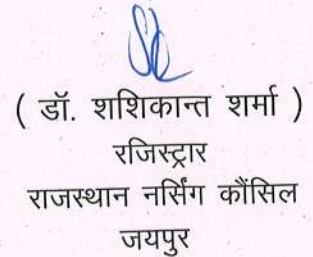 ( डॉ. शशिकान्त शर्मा )
रजिस्ट्रार
राजस्थान नर्सिंग कौंसिल
जयपुर